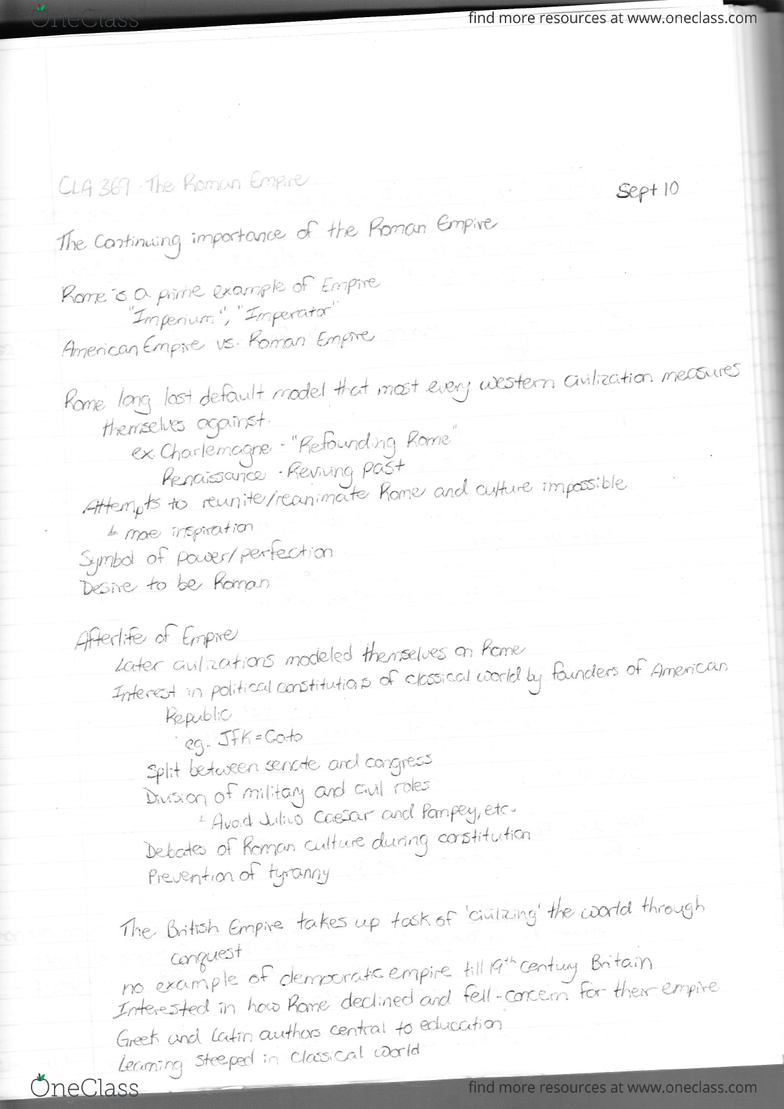 OneClass
find more resources at www.oneclass.com
CLA 369 - The Roman Empire
Sept 10
The Continuing importance of the Roman Empire
Rome is a prime example of Empire
"Imperium", "Imperator"
American Empire vs. Roman Empire
Rome long last default model that most every western civilization measures
themselves against.
ex. Charlemagne - "Refounding Rome"
Renaissance - Reviving past
Attempts to reunite/reanimate Rome and culture impossible
↳ moe inspiration
Symbol of power/perfection
Desire to be Roman
Afterlife of Empire
Later civilizations modeled themselves on Rome
Interest in political constitutions of classical world by founders of American
Republic
eg. JFK = Cato
Split between senate and congress
Division of military and civil roles
↳ Avoid Julius Caesar and Pompey, etc.
Debates of Roman culture during constitution
Prevention of tyranny
The British Empire takes up task of 'civilizing' the world through
conquest
no example of democratic empire till 19th century Britain
Interested in how Rome declined and fell - concern for their empire
Greek and Latin authors central to education
Learning steeped in classical world
OneClass
find more resources at www.oneclass.com